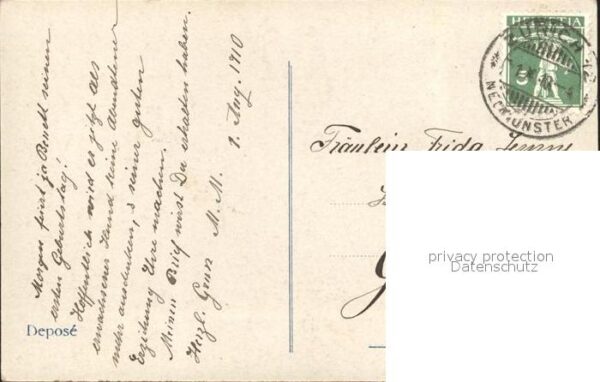 Morgen feiert ja Benelt seinen
ersten Geburtstag!
Hoffentlich wird er jetzt als
erwachsener Hund keine
mehr anstellen, & seiner guten
Erziehung Ehre machen.
Meinen Brief wirst Du erhalten haben.
Herzl. Gruss M. M. 1. Aug. 1910
Deposé
HELVETIA
ZÜRICH 12
NEUMÜNSTER
5
Fräulein Frida
privacy protection
Datenschutz